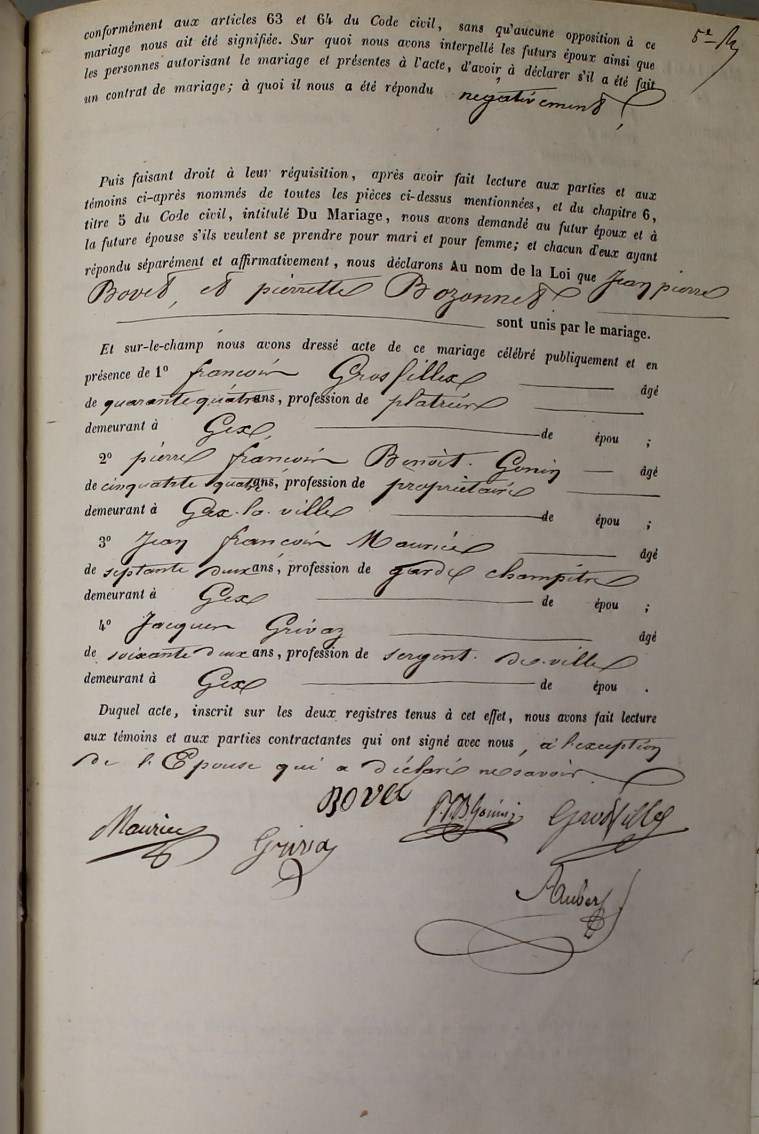 conformément aux articles 63 et 64 du Code civil, sans qu'aucune opposition à ce
mariage nous ait été signifiée. Sur quoi nous avons interpellé les futurs époux ainsi que
les personnes autorisant le mariage et présentes à l'acte, d'avoir à déclarer s'il a été fait
un contrat de mariage; à quoi il nous a été répondu négativement
Puis faisant droit à leur réquisition, après avoir fait lecture aux parties et aux
témoins ci-après nommés de toutes les pièces ci-dessus mentionnées, et du chapitre 6,
titre 5 du Code civil, intitulé Du Mariage, nous avons demandé au futur époux et à
la future épouse s'ils veulent se prendre pour mari et pour femme; et chacun d'eux ayant
répondu séparément et affirmativement, nous déclarons Au nom de la Loi que Jean pierre
Bovet, et pierrette Bozonnet
sont unis par le mariage.
Et sur-le-champ nous avons dressé acte de ce mariage célébré publiquement et en
présence de 1º francois Grosfillex âgé
de quarante quatre ans, profession de platrier
demeurant à Gex de épou ;
2º pierre francois Benoit Gonin âgé
de cinquante quatre ans, profession de propriétaire
demeurant à Gex-la-ville de épou ;
3º Jean francois Maurice âgé
de septante deux ans, profession de garde champêtre
demeurant à Gex de épou ;
4º Jacques Grivaz âgé
de soixante deux ans, profession de sergent de-ville
demeurant à Gex de épou .
Duquel acte, inscrit sur les deux registres tenus à cet effet, nous avons fait lecture
aux témoins et aux parties contractantes qui ont signé avec nous, à l'exception
de l'Epouse qui a déclaré ne savoir.
BOVet
Maurice Grivaz PFBGonin Grosfillex
Aubert